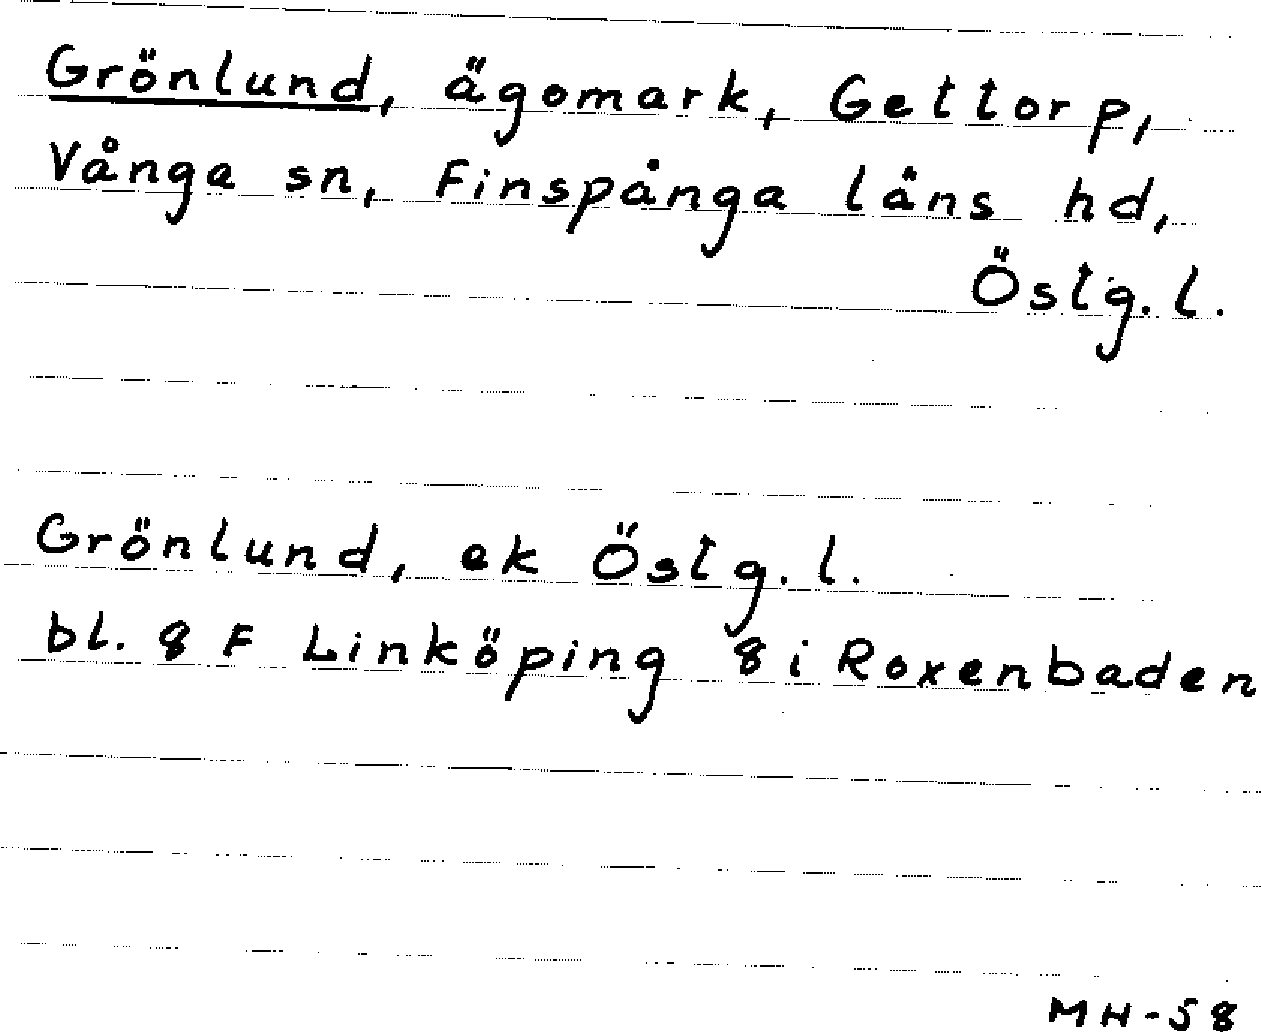 Grönlund, ägomark, Gettorp,
Vånga sn, Finspånga läns hd,
Östg. l.
Grönlund, ek Östg. l.
bl. 8 F Linköping 8 i Roxenbaden
MH-58